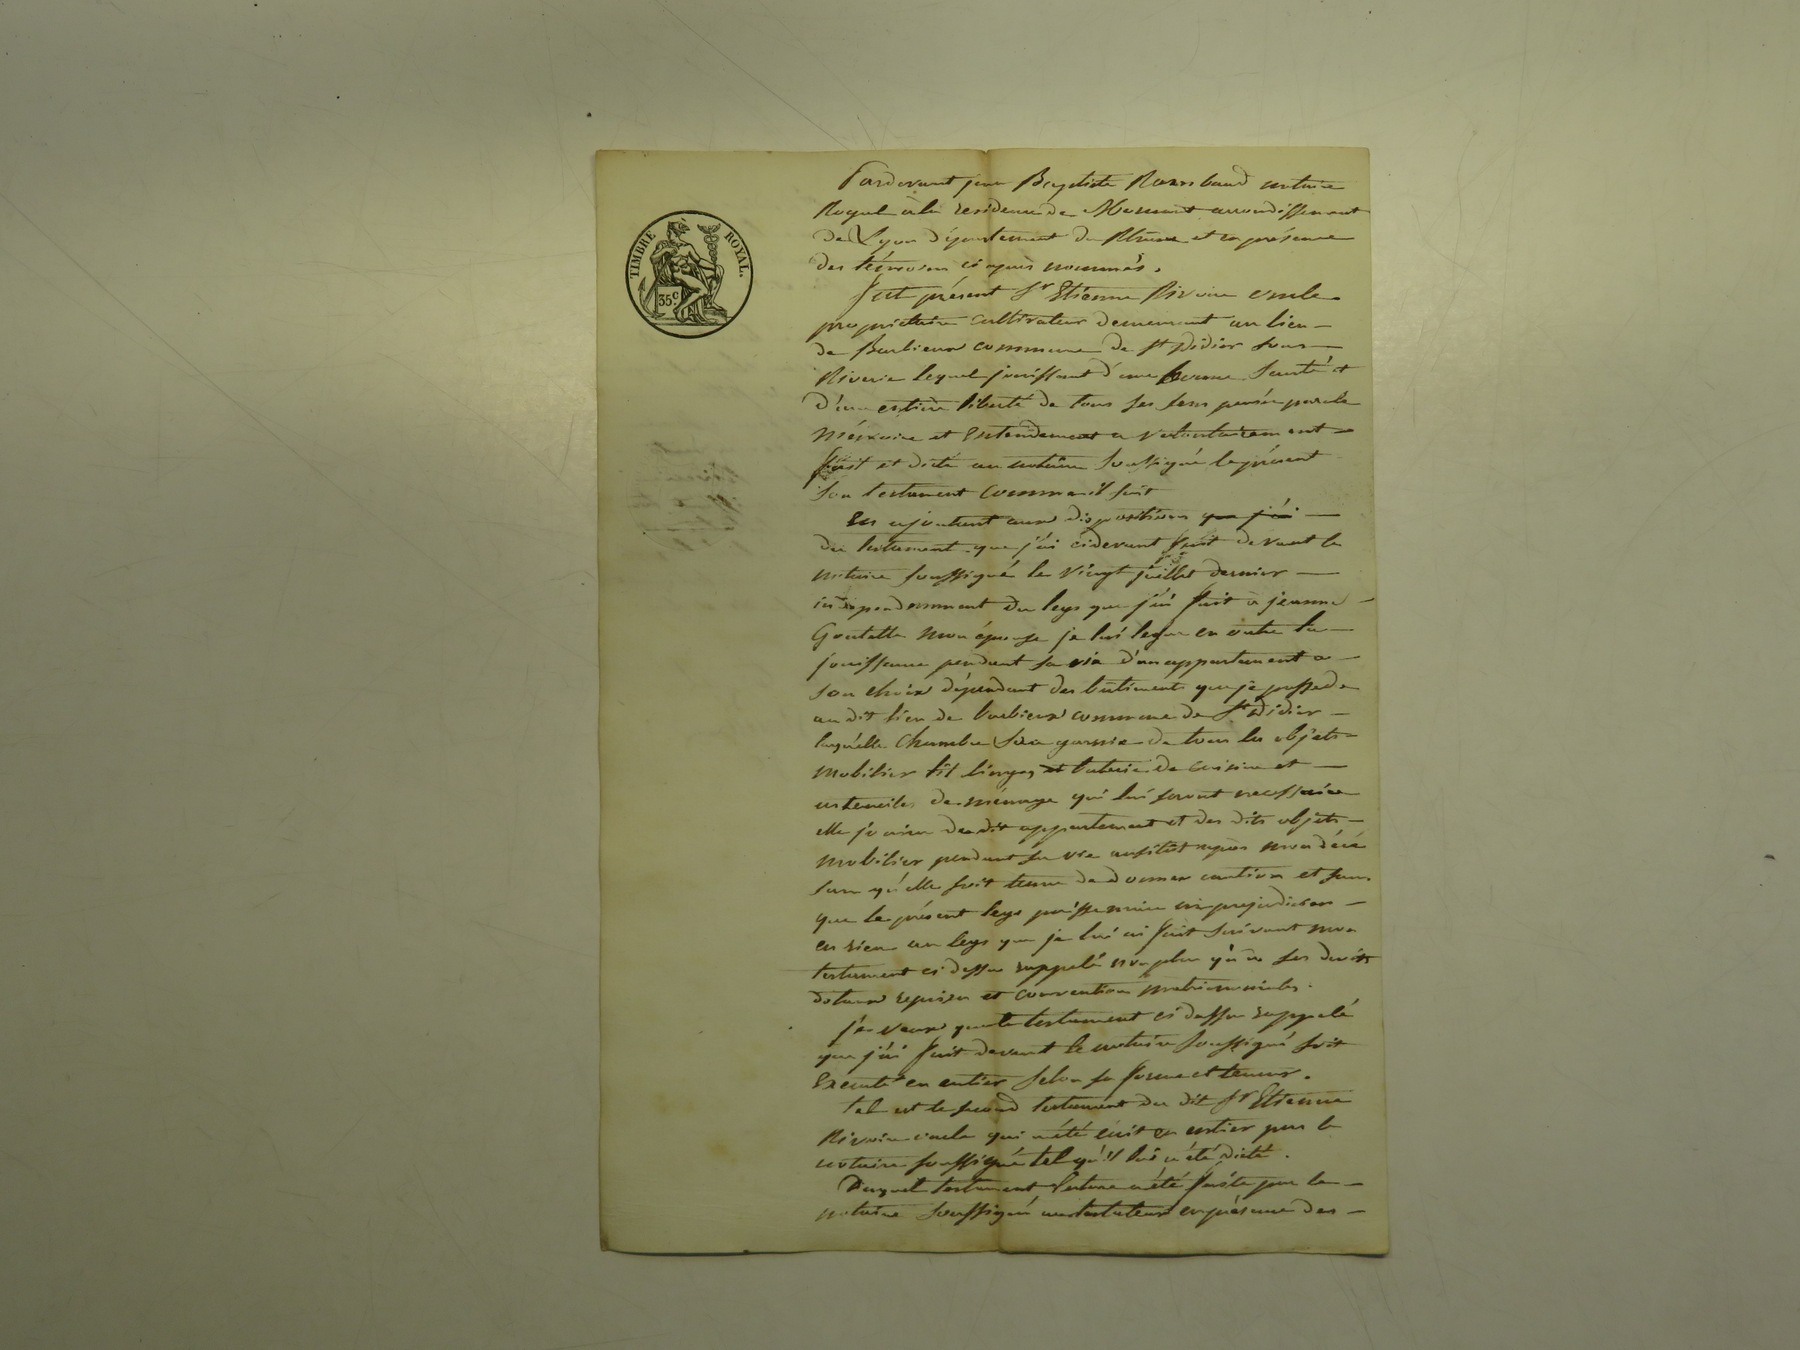 TIMBRE ROYAL.
35c.
Pardevant jean Baptiste Rambaud notaire
Royal à la residence de Mornant arrondissement
de Lyon département du Rhône et en présence
des témoins ci après nommés.
fut présent Sr Etienne Rivoire oncle
propriétaire cultivateur demeurant au lieu
de Barbieux commune de St Didier sous
Riverie lequel jouissant d'une bonne santé et
d'une entière liberté de tous ses sens pensée parole
mémoire et Entendement a volontairement
fait et dicté au notaire soussigné le présent
son testament comme il suit
En ajoutant aux dispositions que j'ai
du testament que j'ai cidevant fait devant le
notaire soussigné le vingt juillet dernier
independemment du legs que j'ai fait à jeanne
Goutelle mon épouse je lui legue en outre la
jouissance pendant sa vie d'un appartement a
son choix dépendant des bâtiments que je possede
au dit lieu de barbieux commune de St Didier
laquelle chambre sera garnie de tous les objets
mobilier lit linges et batterie de cuisine et
ustensiles de ménage qui lui seront necessaire
elle jouira du dit appartement et des dits objets
mobilier pendant sa vie aussitôt après mon décé
sans qu'elle soit tenue de donner caution et sans
que le présent legs puisse nuire ni prejudicier
en rien au legs que je lui ai fait suivant mon
testament ci dessus rappelé non plus qu'à ses droits
dotaux reprises et conventions matrimoniales.
je veux que le testament ci dessus rappelé
que j'ai fait devant le notaire soussigné soit
Executé en entier selon sa forme et teneur.
tel est le second testament du dit Sr Etienne
Rivoire oncle qui a été écrit en entier par le
notaire soussigné tel qu'il lui a été dicté.
Duquel testament lecture a été faite par le
notaire soussigné au testateur en présence des